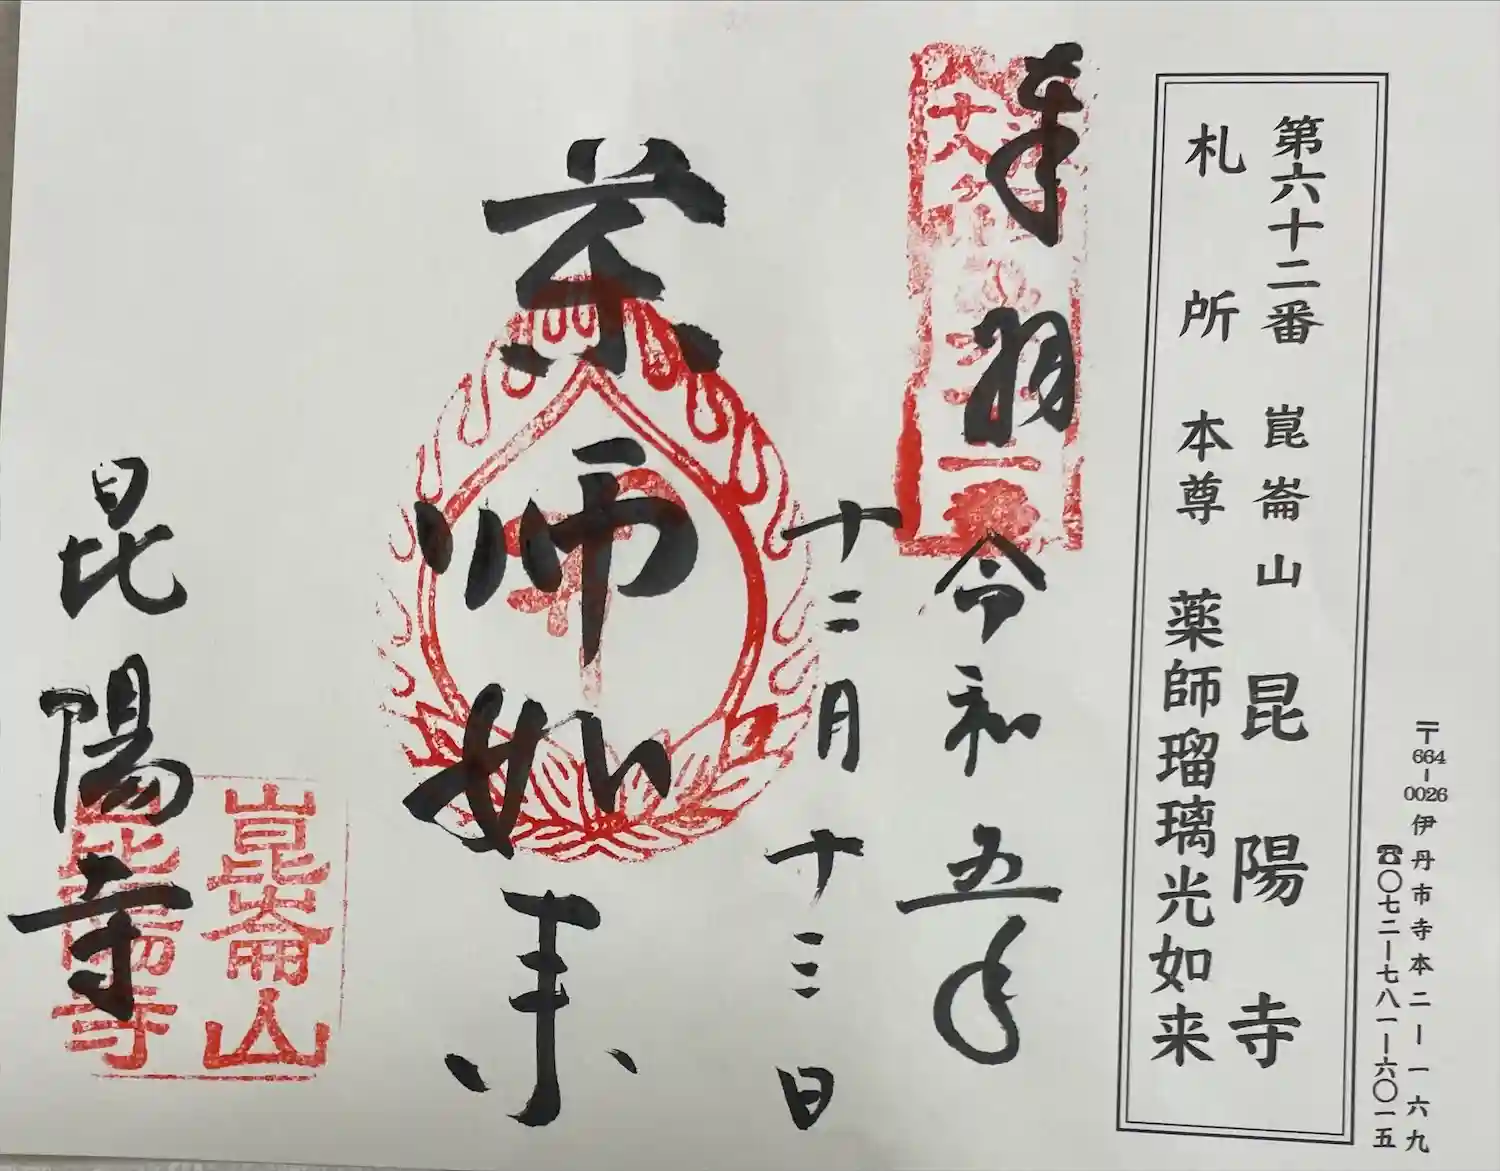 〒664-0026 伊丹市寺本二ー一六九
☎〇七二ー七八一ー六〇一五
第六十二番 崑崙山 昆陽寺
札所本尊 薬師瑠璃光如来
奉拝 令和五年
十二月十三日
薬師如来
昆陽寺
崑崙山
昆陽寺